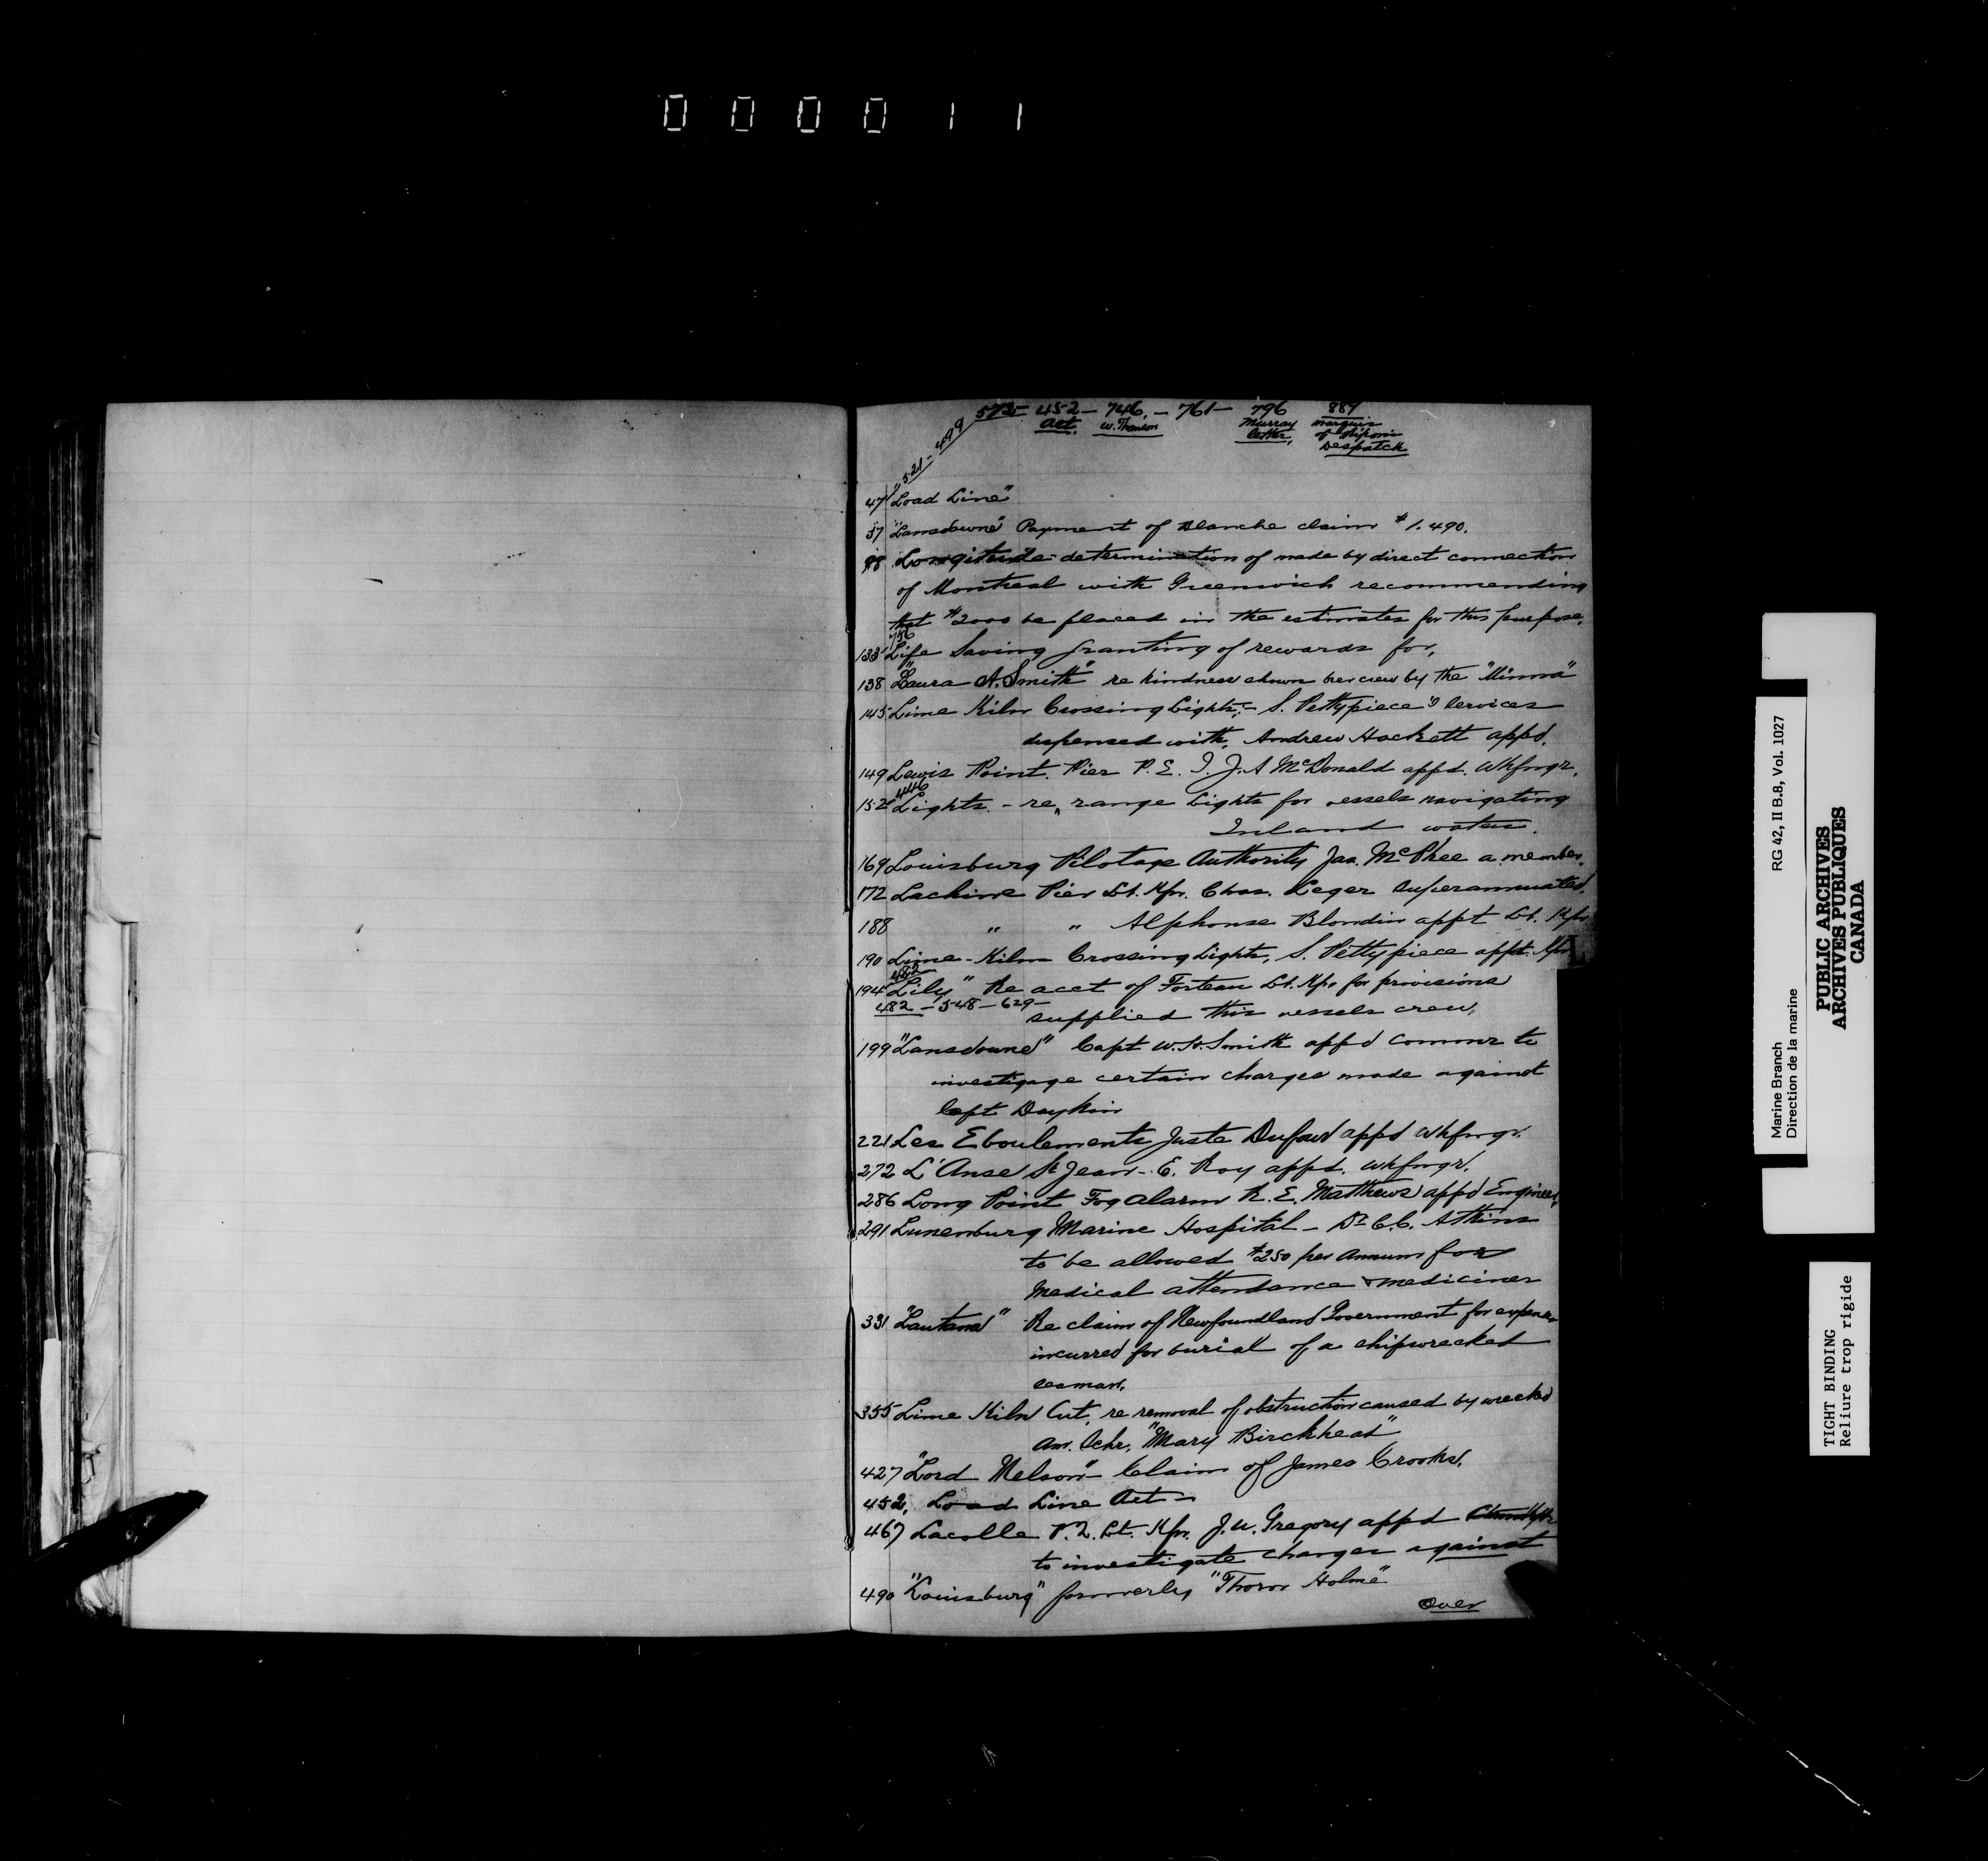 000011
521 - 499 572 - 452 - 746. - 761 - 796 889
Act. W. Thomson Murray Marquis
letter, of Ripon's
Despatch
47 "Load Line"
57 "Lansdowne" Payment of Blanche claim $1.490.
98 Longitude - determination of made by direct connection
of Montreal with Greenwich recommending
that $2000 be placed in the estimates for this purpose.
756
133 Life Saving granting of rewards for,
138 "Laura A. Smith" re kindness shown her crew by the "Minnia"
145 Lime Kiln Crossing Lights, - S. Pettypiece's services
dispensed with, Andrew Hackett appd.
149 Lewis Point Pier P. E. I. J. A McDonald appd. Whfngr.
446
152 Lights - re, range Lights for vessels navigating
Inland waters.
169 Louisburg Pilotage Authority Jas. McPhee a member.
172 Lachine Pier Lt. Kpr. Chas. Leger superannuated.
188 " " Alphonse Blondin appt Lt. Kpr
190 Lime-Kiln Crossing Lights, S. Pettypiece appt. Kpr
482
194 "Lily" Re acct of Forteau Lt. Kpr for provisions
482 - 548 - 629 -
supplied this vessels crew,
199 "Lansdowne" Capt W. H. Smith appd Commr to
investigage certain charges made against
Capt Daykin
221 Les Eboulements Juste Dufour appd Whfngr.
272 L'Anse St Jean - E. Roy appd. Whfngr.
286 Long Point Fog alarm R. E. Matthews appd Engineer,
291 Lunenburg Marine Hospital - Dr C. C. Atkins
to be allowed $250 per Annum for
Medical attendance & medicines
331 "Lantana" Re claim of Newfoundland Government for expenses
incurred for burial of a shipwrecked
seaman.
355 Lime Kiln Cut, re removal of obstruction caused by wrecked
Am. Schr. "Mary Birckhead"
427 "Lord Nelson" - Claim of James Crooks.
452, Load Line Act -
467 Lacolle P. Q. Lt. Kpr. J. U. Gregory appd
to investigate charges against
490 "Louisburg" formerly "Thorn Holme"
Over
Marine Branch RG 42, II B.8, Vol. 1027
Direction de la marine
PUBLIC ARCHIVES
ARCHIVES PUBLIQUES
CANADA
TIGHT BINDING
Reliure trop rigide